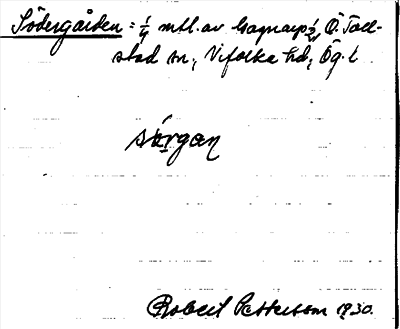 Södergården = 1/4 mtl. av Gagnarp 1/2, Ö. Toll-
stad sn, Vifolka hd, Ög. l.
sörgan
Robert Pettersson 1930.